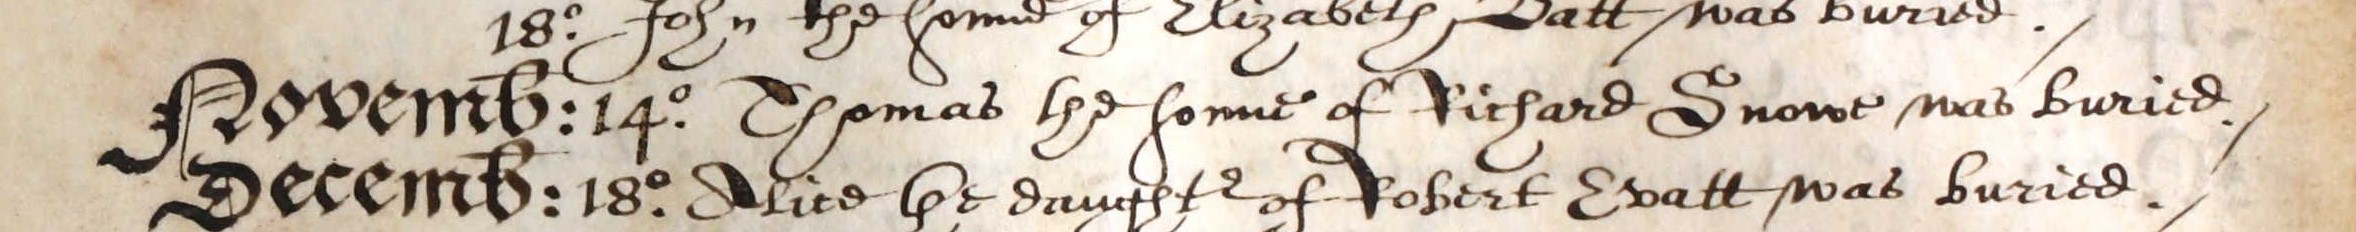 18º. John the sonne of Elizabeth Batt was buried.
Novemb: 14º. Thomas the sonne of Richard Snowe was buried.
Decemb: 18º. Alice the daught^r of Robert Evatt was buried.